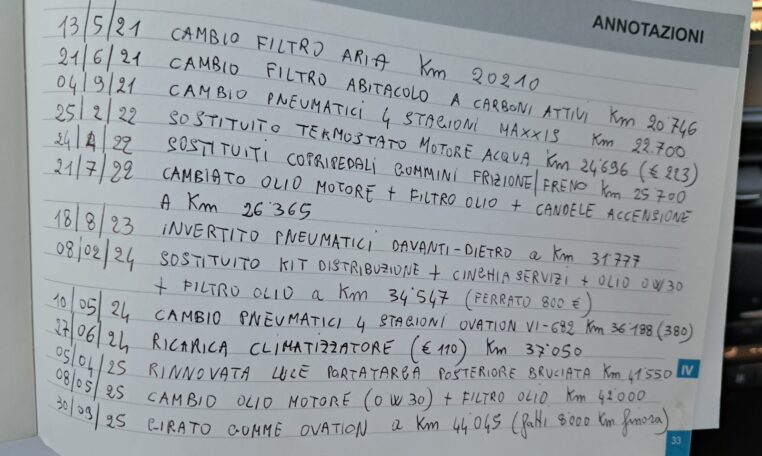 ANNOTAZIONI
13/5/21 CAMBIO FILTRO ARIA Km 20210
21/6/21 CAMBIO FILTRO ABITACOLO A CARBONI ATTIVI Km 20'746
04/9/21 CAMBIO PNEUMATICI 4 STAGIONI MAXXIS Km 22.700
25/2/22 SOSTITUITO TERMOSTATO MOTORE ACQUA Km 24'696 (€ 213)
24/4/22 SOSTITUITI COPRIPEDALI GOMMINI FRIZIONE/FRENO Km 25'700
21/7/22 CAMBIATO OLIO MOTORE + FILTRO OLIO + CANDELE ACCENSIONE
A Km 26'365
18/8/23 INVERTITO PNEUMATICI DAVANTI-DIETRO a Km 31'777
08/02/24 SOSTITUITO KIT DISTRIBUZIONE + CINGHIA SERVIZI + OLIO 0W30
+ FILTRO OLIO a Km 34'547 (FERRATO 800 €)
10/05/24 CAMBIO PNEUMATICI 4 STAGIONI OVATION VI-682 Km 36'188 (380)
27/06/24 RICARICA CLIMATIZZATORE (€ 110) Km 37'050
05/04/25 RINNOVATA LUCE PORTATARGA POSTERIORE BRUCIATA Km 41'550
IV
08/05/25 CAMBIO OLIO MOTORE (0W30) + FILTRO OLIO Km 42'000
30/09/25 GIRATO GOMME OVATION a Km 44'045 (fatti 8000 Km finora)
33